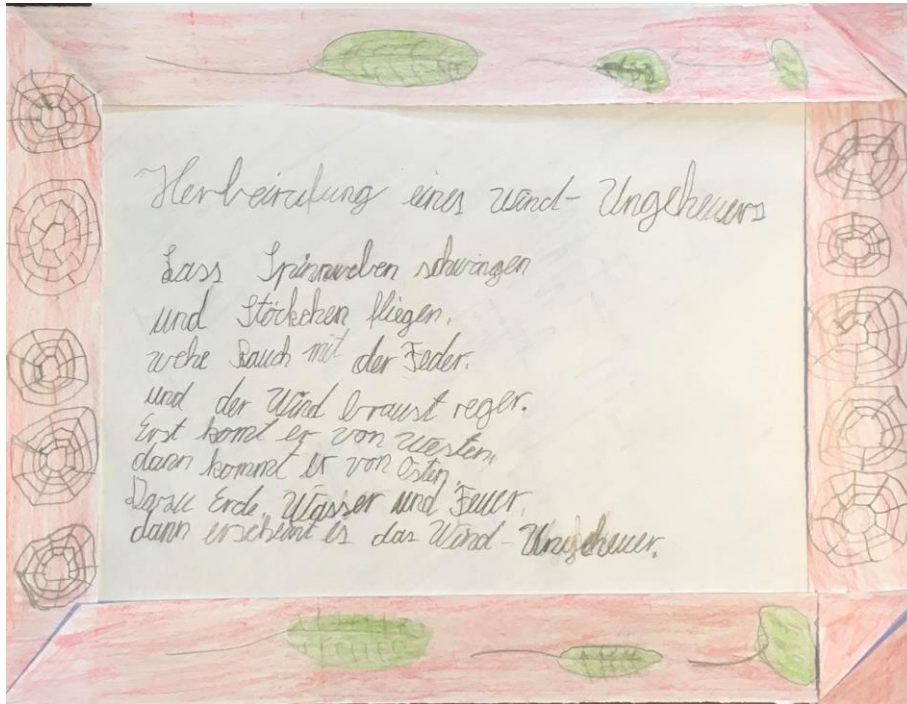 Herbeirufung eines Wind-Ungeheuers
Lass Spinnweben schwingen
und Stöckchen fliegen,
wehe Rauch mit der Feder.
und der Wind braust reger.
Erst komt er von Westen,
dann kommt er von Osten,
Dazu Erde, Wasser und Feuer,
dann erscheint es das Wind-Ungeheuer.